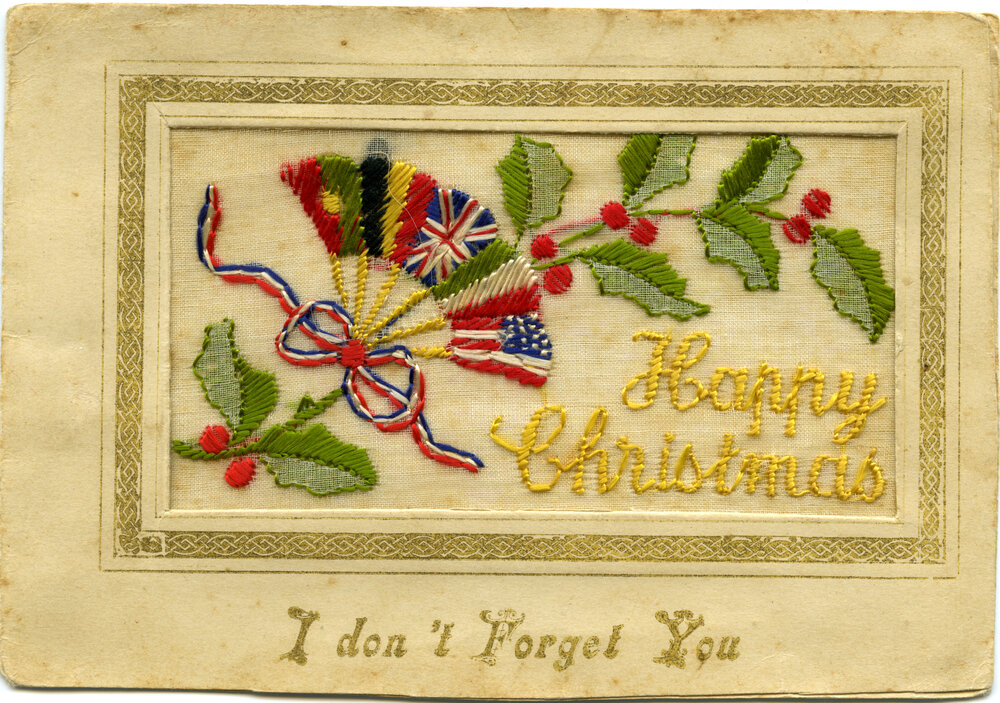 Happy
Christmas
I don't Forget You